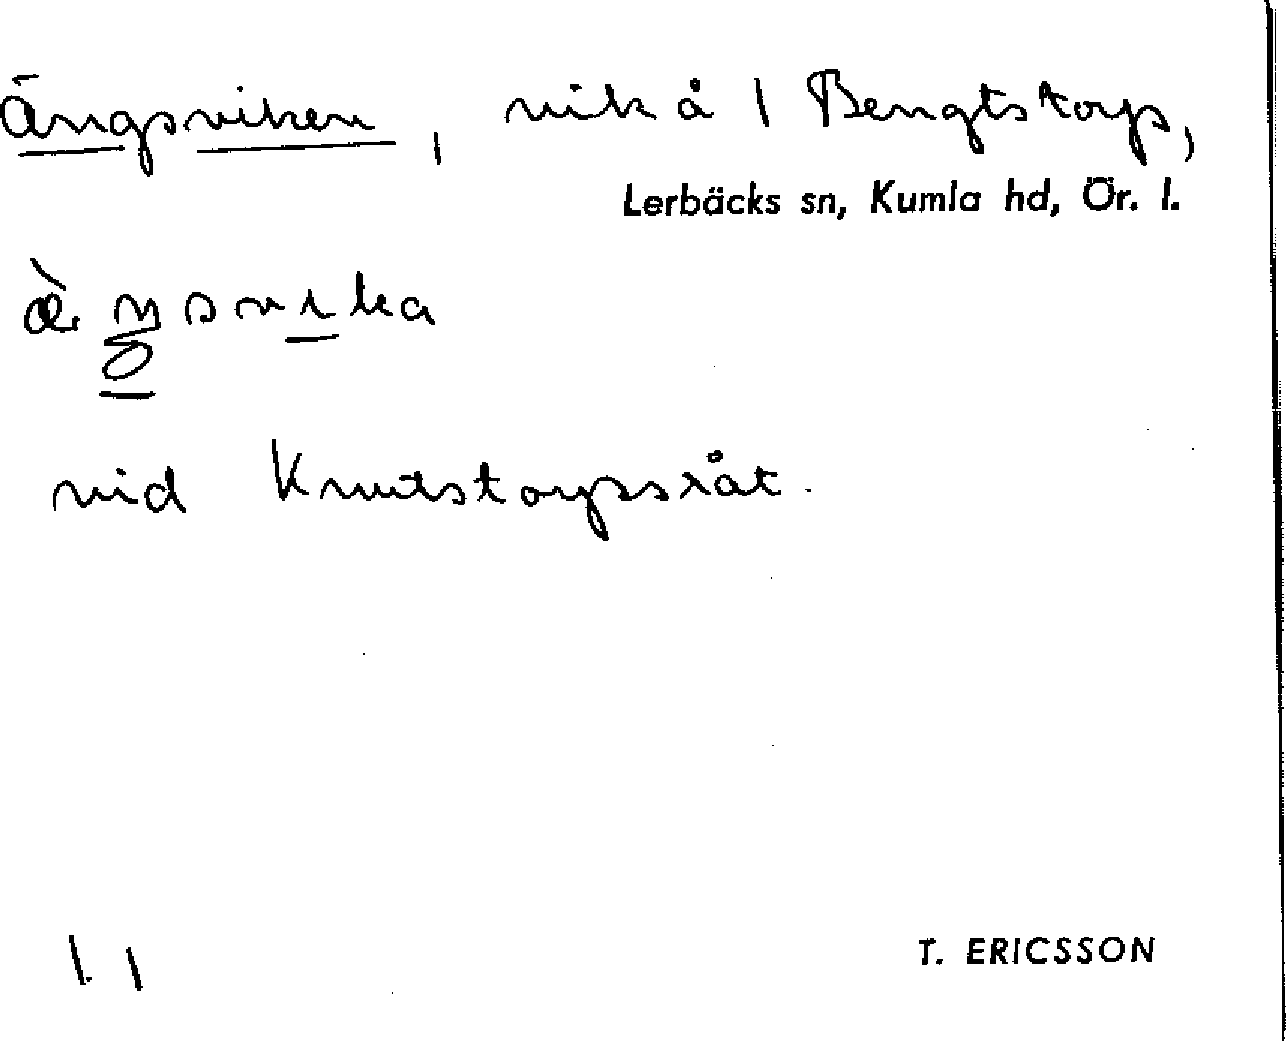 Ängsviken, vik å 1 Bengtstorp,
Lerbäcks sn, Kumla hd, Ör. l.
vid Knutstorpssråt.
T. ERICSSON